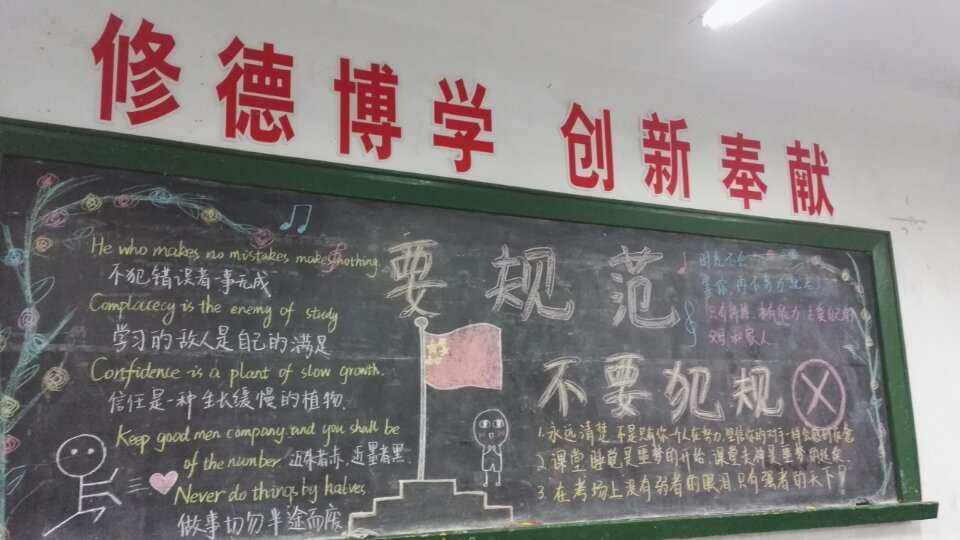 修德博学 创新奉献
He who makes no mistakes makes nothing.
不犯错误者事无成
Complacecy is the enemy of study
学习的敌人是自己的满足
Confidence is a plant of slow growth.
信任是一种生长缓慢的植物.
Keep good men company and you shall be
of the number. 近朱者赤,近墨者黑.
Never do things by halves
做事切勿半途而废
要规范
不要犯规
只有
才能
父母和家人
1.永远清楚 不是只有你一个人在努力
2.课堂睡觉是噩梦的开始,课堂走神是噩梦的
3.在考场上没有弱者的眼泪只有强者的天下